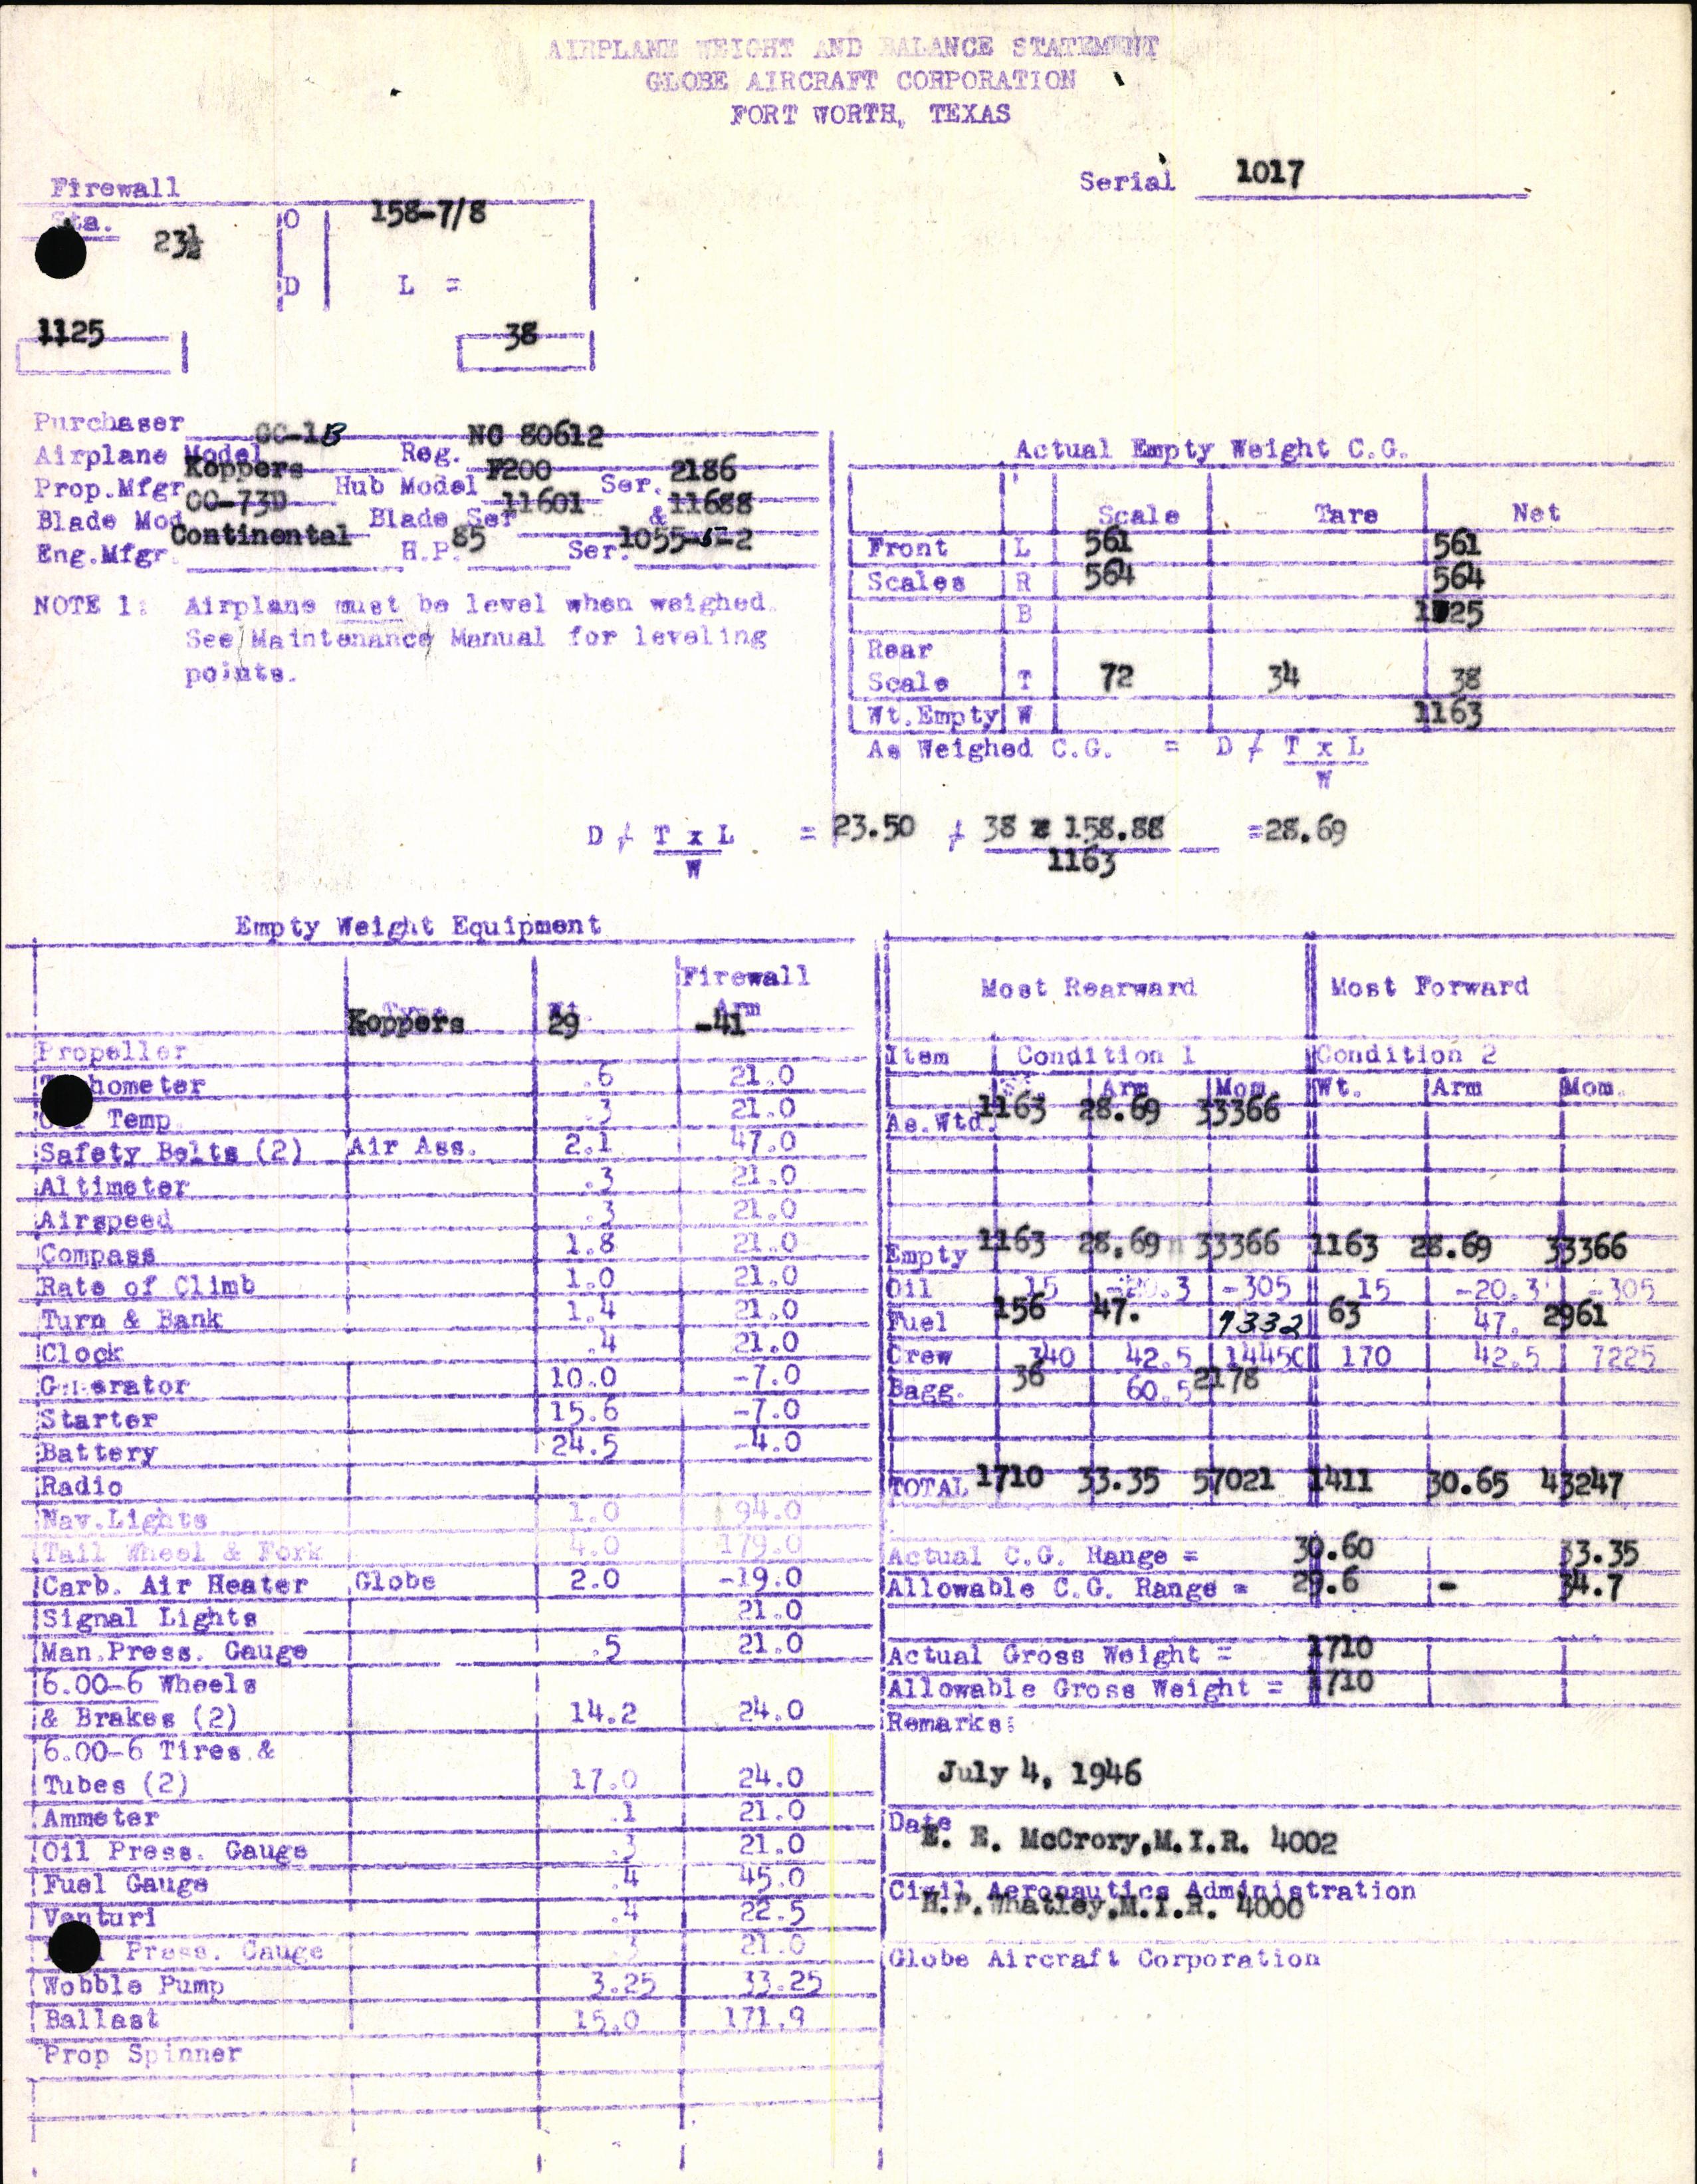 AIRPLANE WEIGHT AND BALANCE STATEMENT
GLOBE AIRCRAFT CORPORATION
FORT WORTH, TEXAS
Serial 1017
Firewall
Sta. 23½ O 158-7/8
D L =
1125 38
Purchaser
Airplane Model GC-1B Reg. NC 80612
Prop.Mfgr Koppers Hub Model F200 Ser. 2186
Blade Mod CO-73D Blade Ser 11601 & 11688
Eng.Mfgr. Continental H.P. 85 Ser. 1055-5-2
NOTE 1: Airplane must be level when weighed.
See Maintenance Manual for leveling
points.
Actual Empty Weight C.G.
Scale Tare Net
Front L 561 561
Scales R 564 564
B 1125
Rear
Scale T 72 34 38
Wt.Empty W 1163
As Weighed C.G. = D ≠ T x L
W
D ≠ T x L = 23.50 ≠ 38 x 158.88 =28.69
W 1163
Empty Weight Equipment
Type Wt. Firewall Arm
Propeller Koppers 29 -41
Tachometer .6 21.0
Oil Temp. .3 21.0
Safety Belts (2) Air Ass. 2.1 47.0
Altimeter .3 21.0
Airspeed .3 21.0
Compass 1.8 21.0
Rate of Climb 1.0 21.0
Turn & Bank 1.4 21.0
Clock .4 21.0
Generator 10.0 -7.0
Starter 15.6 -7.0
Battery 24.5 -4.0
Radio
Nav.Lights 1.0 94.0
Tail Wheel & Fork 4.0 179.0
Carb. Air Heater Globe 2.0 -19.0
Signal Lights 21.0
Man.Press. Gauge .5 21.0
6.00-6 Wheels
& Brakes (2) 14.2 24.0
6.00-6 Tires &
Tubes (2) 17.0 24.0
Ammeter .1 21.0
Oil Press. Gauge .3 21.0
Fuel Gauge .4 45.0
Venturi .4 22.5
Press. Gauge .3 21.0
Wobble Pump 3.25 33.25
Ballast 15.0 171.9
Prop Spinner
Most Rearward Most Forward
Item Condition 1 Condition 2
Arm Mom. Wt. Arm Mom.
As.Wtd. 1163 28.69 33366
Empty 1163 28.69 33366 1163 28.69 33366
Oil 15 -20.3 -305 15 -20.3 -305
Fuel 156 47. 7332 63 47. 2961
Crew 340 42.5 14450 170 42.5 7225
Bagg. 36 60.5 2178
TOTAL 1710 33.35 57021 1411 30.65 43247
Actual C.G. Range = 30.60 33.35
Allowable C.G. Range = 29.6 - 34.7
Actual Gross Weight = 1710
Allowable Gross Weight = 1710
Remarks:
July 4, 1946
Date
E. E. McCrory,M.I.R. 4002
Civil Aeronautics Administration
H.P.Whatley,M.I.R. 4000
Globe Aircraft Corporation